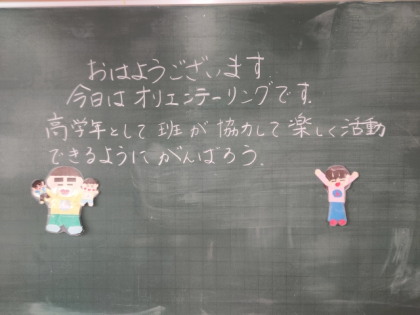 おはようございます.
今日はオリエンテーリングです.
高学年として班が協力して楽しく活動
できるようにがんばろう.